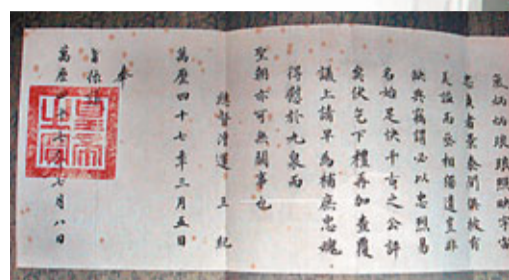 氣炳炳琅琅照映宇宙
忠貞者景泰間俱被有
美諡而丞相獨遺豈非
缺典竊謂必以忠烈易
名始足快千古之公評
矣伏乞下禮再加查覆
議上請早為補庶忠魂
得慰於九泉而
聖朝亦可無闕事也
總督漕運王紀
萬曆四十七年三月五日
奉
旨依議
萬曆四十七年七月八日
皇帝之寶